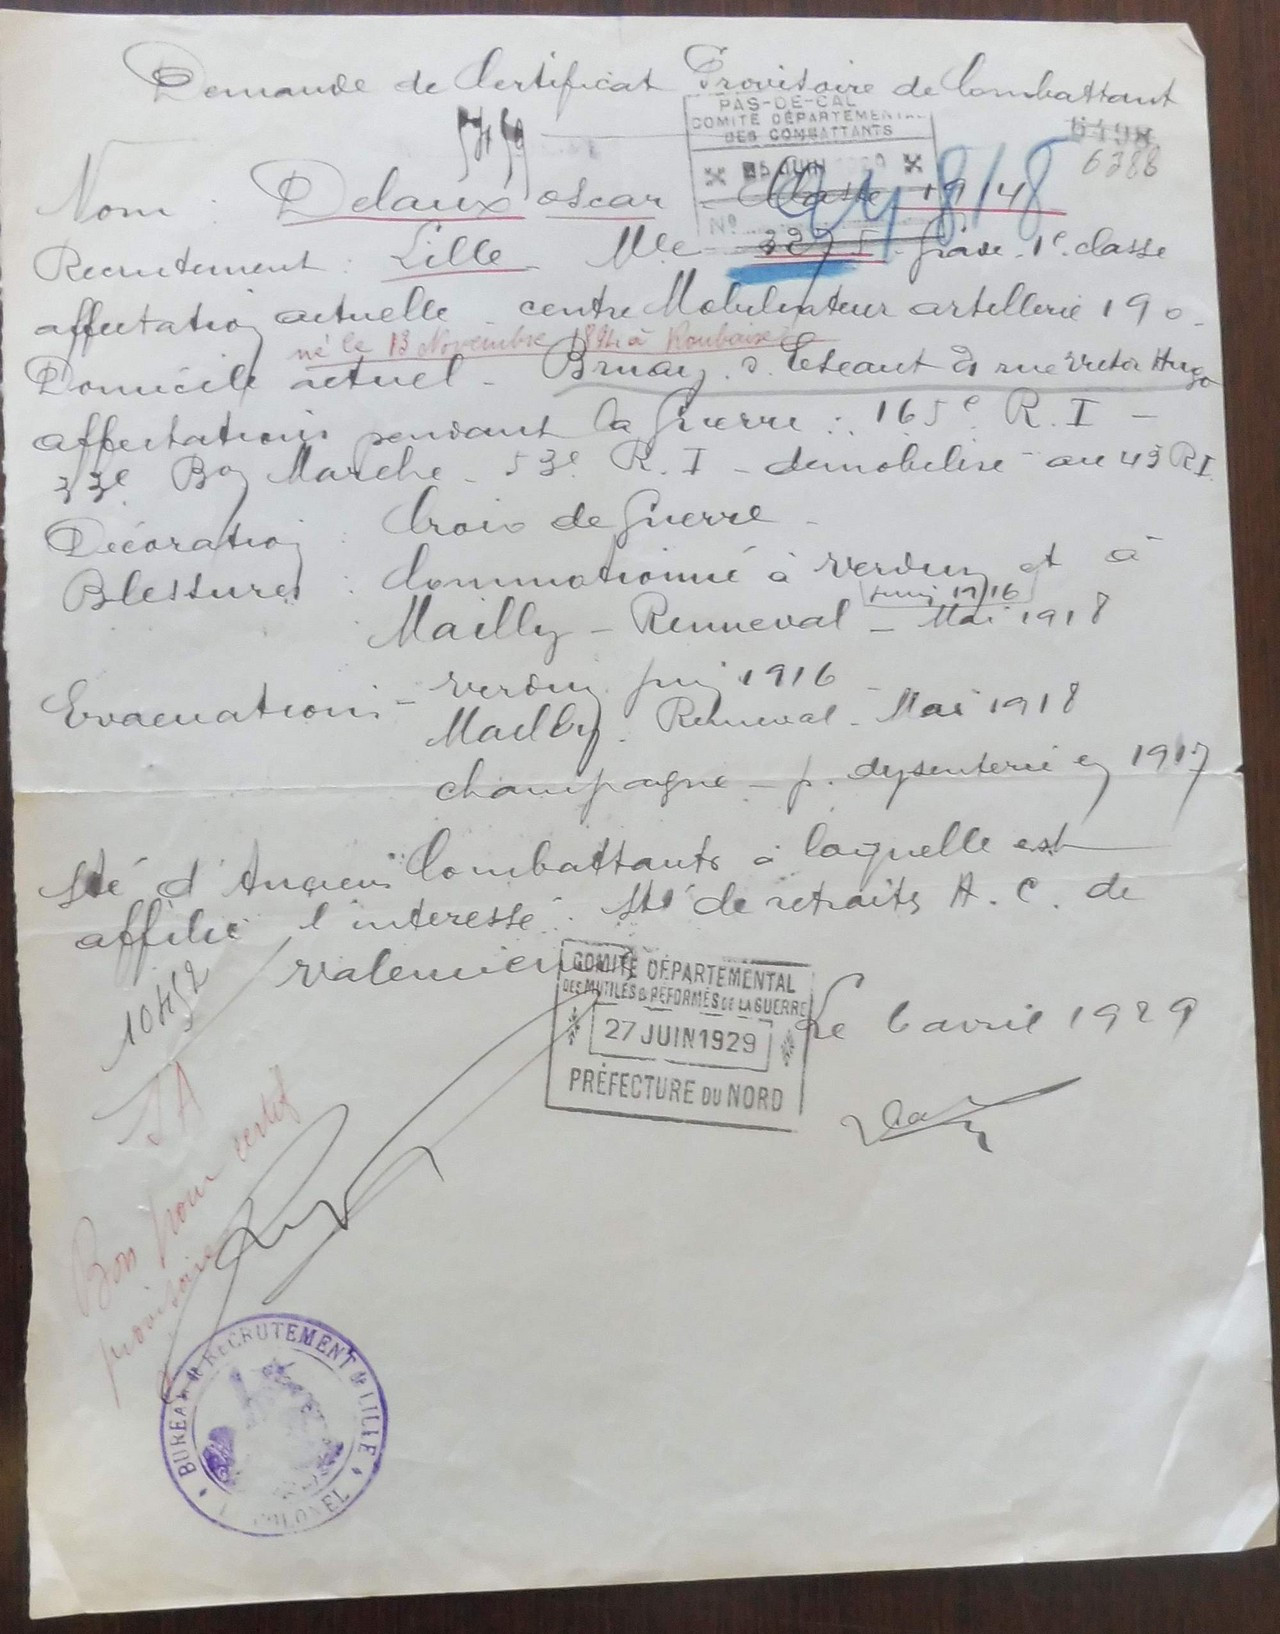 Demande de Certificat Provisoire de Combattant
PAS-DE-CAL
COMITÉ DÉPARTEMENTAL
DES COMBATTANTS
5 JUIN
N°
6498
6388
Nom : Delaux oscar - Classe 1914
Recrutement : Lille - Mle grade - 1e classe
affectation actuelle centre Mobilisateur artillerie 190 -
né le 13 Novembre 1894 à Roubaix
Domicile actuel - Bruay s. Escaut 21 rue Victor Hugo
affectations pendant la Guerre : 165e R. I -
33e Bon Marche - 53e R. I - démobilisé - au 43 R I
Décoration : Croix de Guerre -
Blessures : Commotionné à Verdun et à
juin 1916
Mailly - Renneval - Mai 1918
Evacuations - Verdun juin 1916 -
Mailly - Renneval - Mai 1918
champagne - p. dysenterie en 1917
Sté d'Anciens Combattants à laquelle est
affilié l'interessé : Sté de retraites A. C. de
Valenciennes
COMITÉ DÉPARTEMENTAL
DES MUTILÉS & RÉFORMÉS DE LA GUERRE
27 JUIN 1929
PRÉFECTURE DU NORD
Le 6 avril 1929
Bon pour certif
provisoire
BUREAU DE RECRUTEMENT DE LILLE
COLONEL